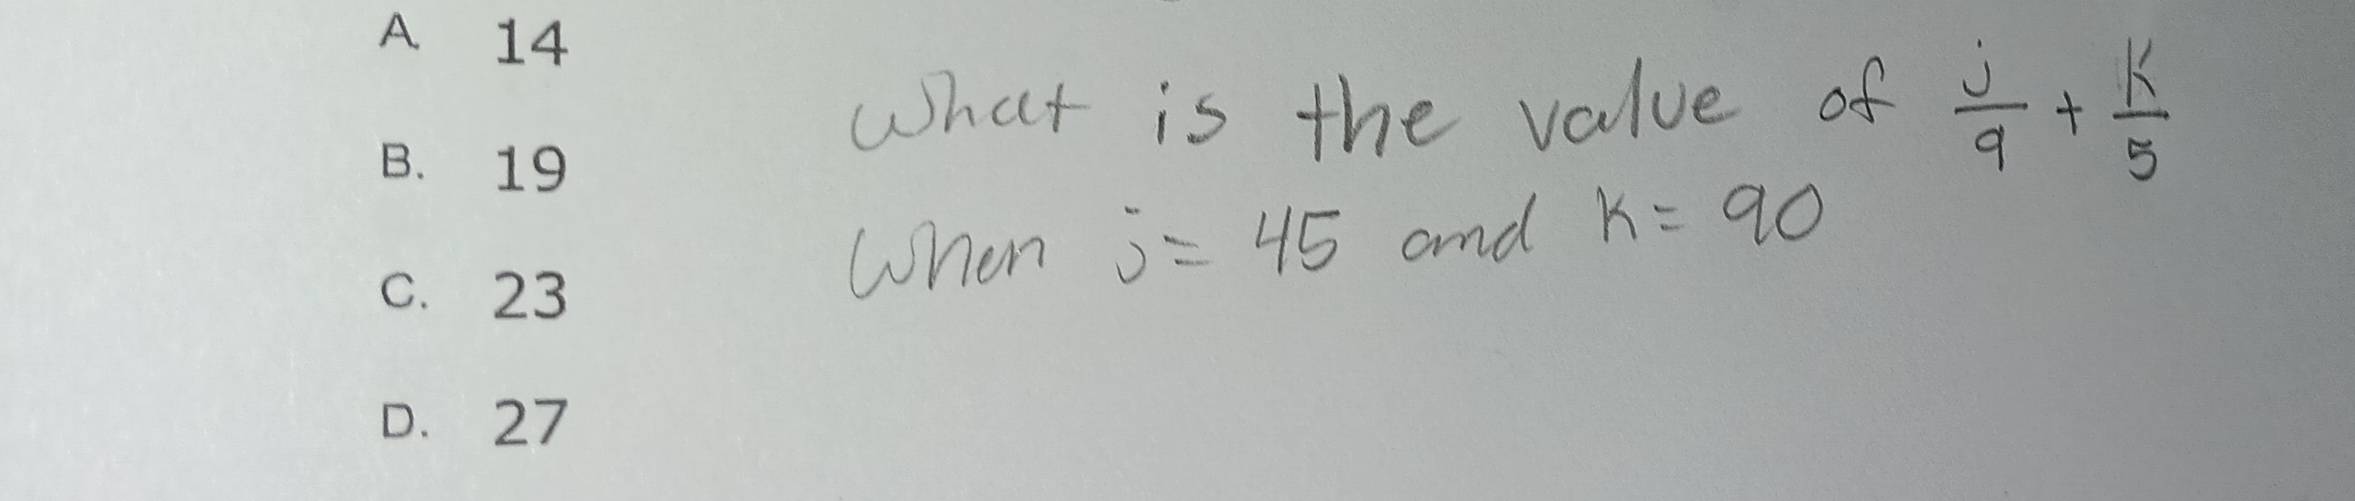 A. 14
What is the value of j/9 + K/5
B. 19
When j = 45 and K = 90
C. 23
D. 27